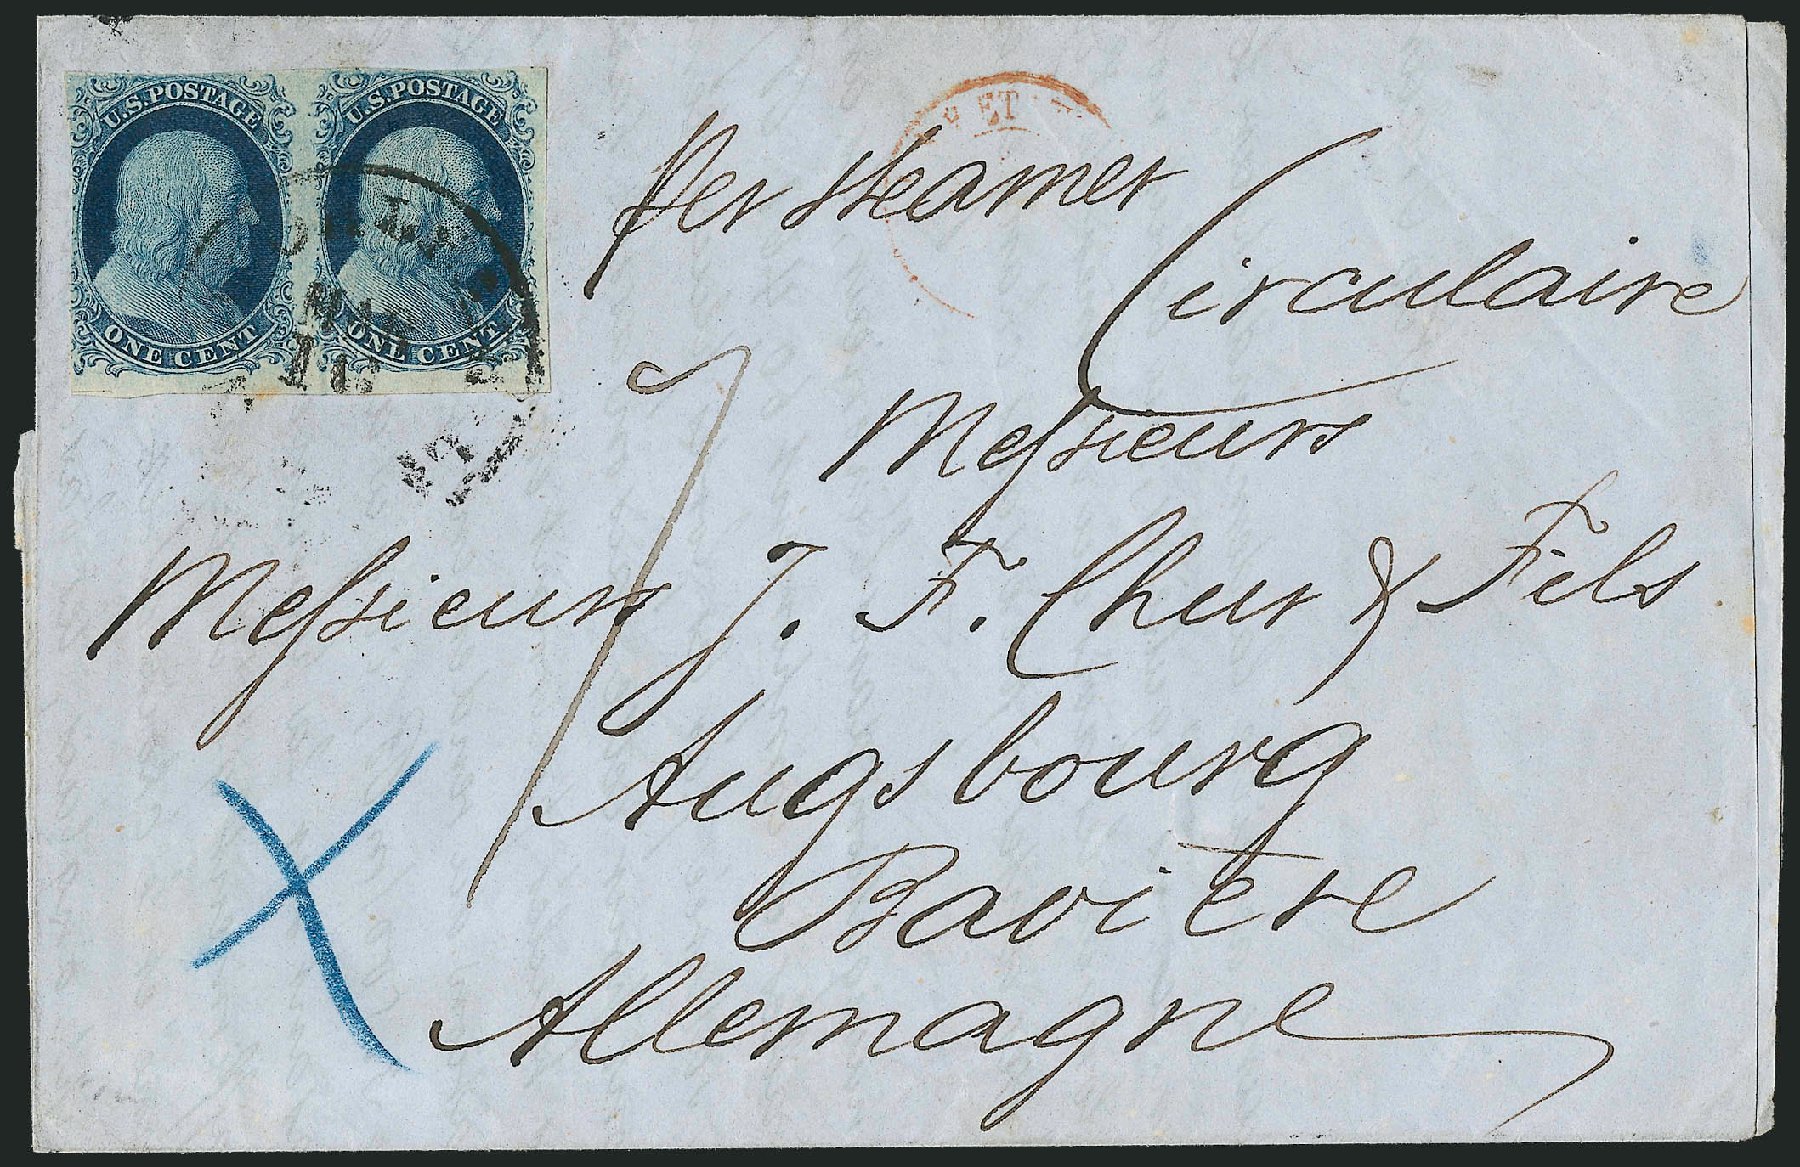 U.S. POSTAGE
ONE CENT
U.S. POSTAGE
ONE CENT
Per Steamer
Circulaire
Messieurs
Messieurs J. F. Chur & Fils
Augsbourg
Bavière
Allemagne